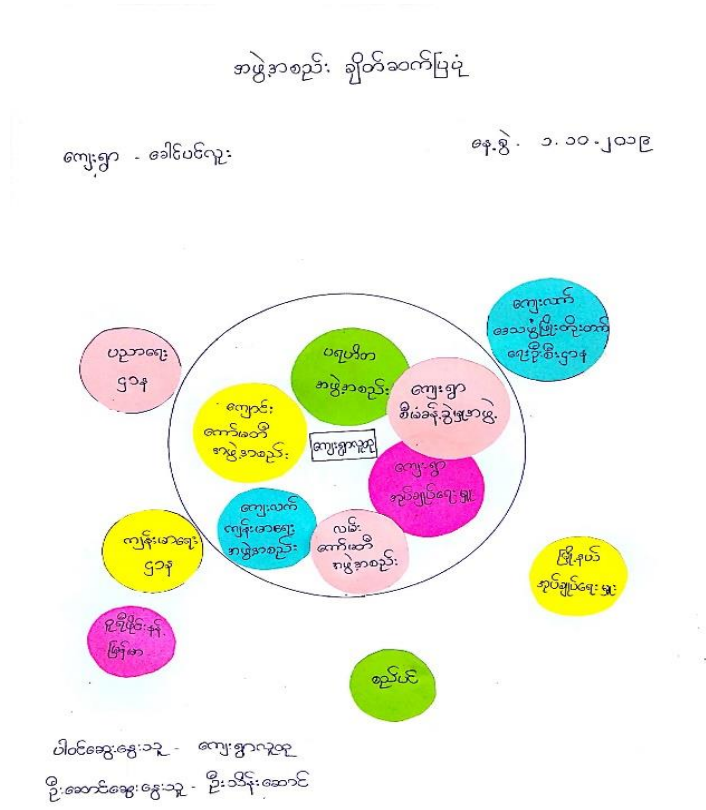 အဖွဲ့အစည်း ချိတ်ဆက်ပြပုံ
ကျေးရွာ - ခေါင်ပင်လူး
နေ့စွဲ - ၁.၁၀.၂၀၁၉
ကျေးလက်
ဒေသဖွံ့ဖြိုးတိုးတက်
ရေးဦးစီးဌာန
ပညာရေး
ဌာန
ပရဟိတ
အဖွဲ့အစည်း
ကျေးရွာ
စီမံခန့်ခွဲမှုအဖွဲ့
ကျောင်း
ကော်မတီ
အဖွဲ့အစည်း
ကျေးရွာလူထု
ကျေးရွာ
အုပ်ချုပ်ရေးမှူး
ကျေးလက်
ကျန်းမာရေး
အဖွဲ့အစည်း
လမ်း
ကော်မတီ
အဖွဲ့အစည်း
ကျန်းမာရေး
ဌာန
မြို့နယ်
အုပ်ချုပ်ရေးမှူး
မြန်မာ
စည်ပင်
ပါဝင်ဆွေးနွေးသူ - ကျေးရွာလူထု
ဦးဆောင်ဆွေးနွေးသူ - ဦးသိန်းဆောင်